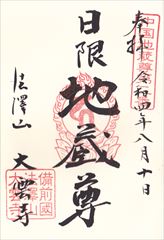 奉拝
令和四年八月十日
日限
地蔵尊
法澤山
大雲寺
備前國
法澤山
大雲寺